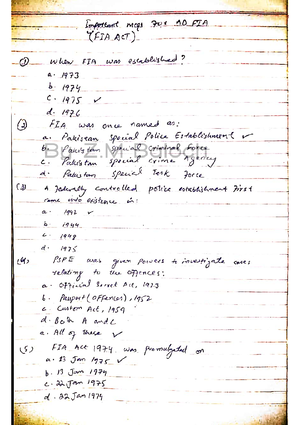 Important mcqs for AD FIA
(FIA ACT).
(1) When FIA was established?
a. 1973
b. 1974
c. 1975 ✓
d. 1976
(2) FIA was once named as:
a. Pakistan Special Police Establishment ✓
b. Pakistan Special Criminal Force
c. Pakistan Special Crime Agency
d. Pakistan Special Task Force
(3) A federally controlled police establishment first
came into existence in:
a. 1942 ✓
b. 1944
c. 1948
d. 1975
(4) PSPE was given powers to investigate cases
relating to the offences:
a. Official Secret Act, 1923
b. Passport (Offences), 1952
c. Custom Act, 1959
d. Both A and C
e. All of these ✓
(5) FIA Act 1974 was promulgated on
a. 13 Jan 1975 ✓
b. 13 Jan 1974
c. 22 Jan 1975
d. 22 Jan 1974